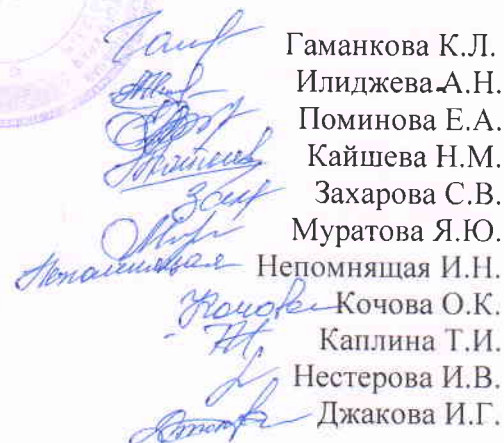 Гаманкова К.Л.
Илиджева А.Н.
Поминова Е.А.
Кайшева Н.М.
Захарова С.В.
Муратова Я.Ю.
Непомнящая Непомнящая И.Н.
Кочова О.К.
Каплина Т.И.
Нестерова И.В.
Джакова И.Г.